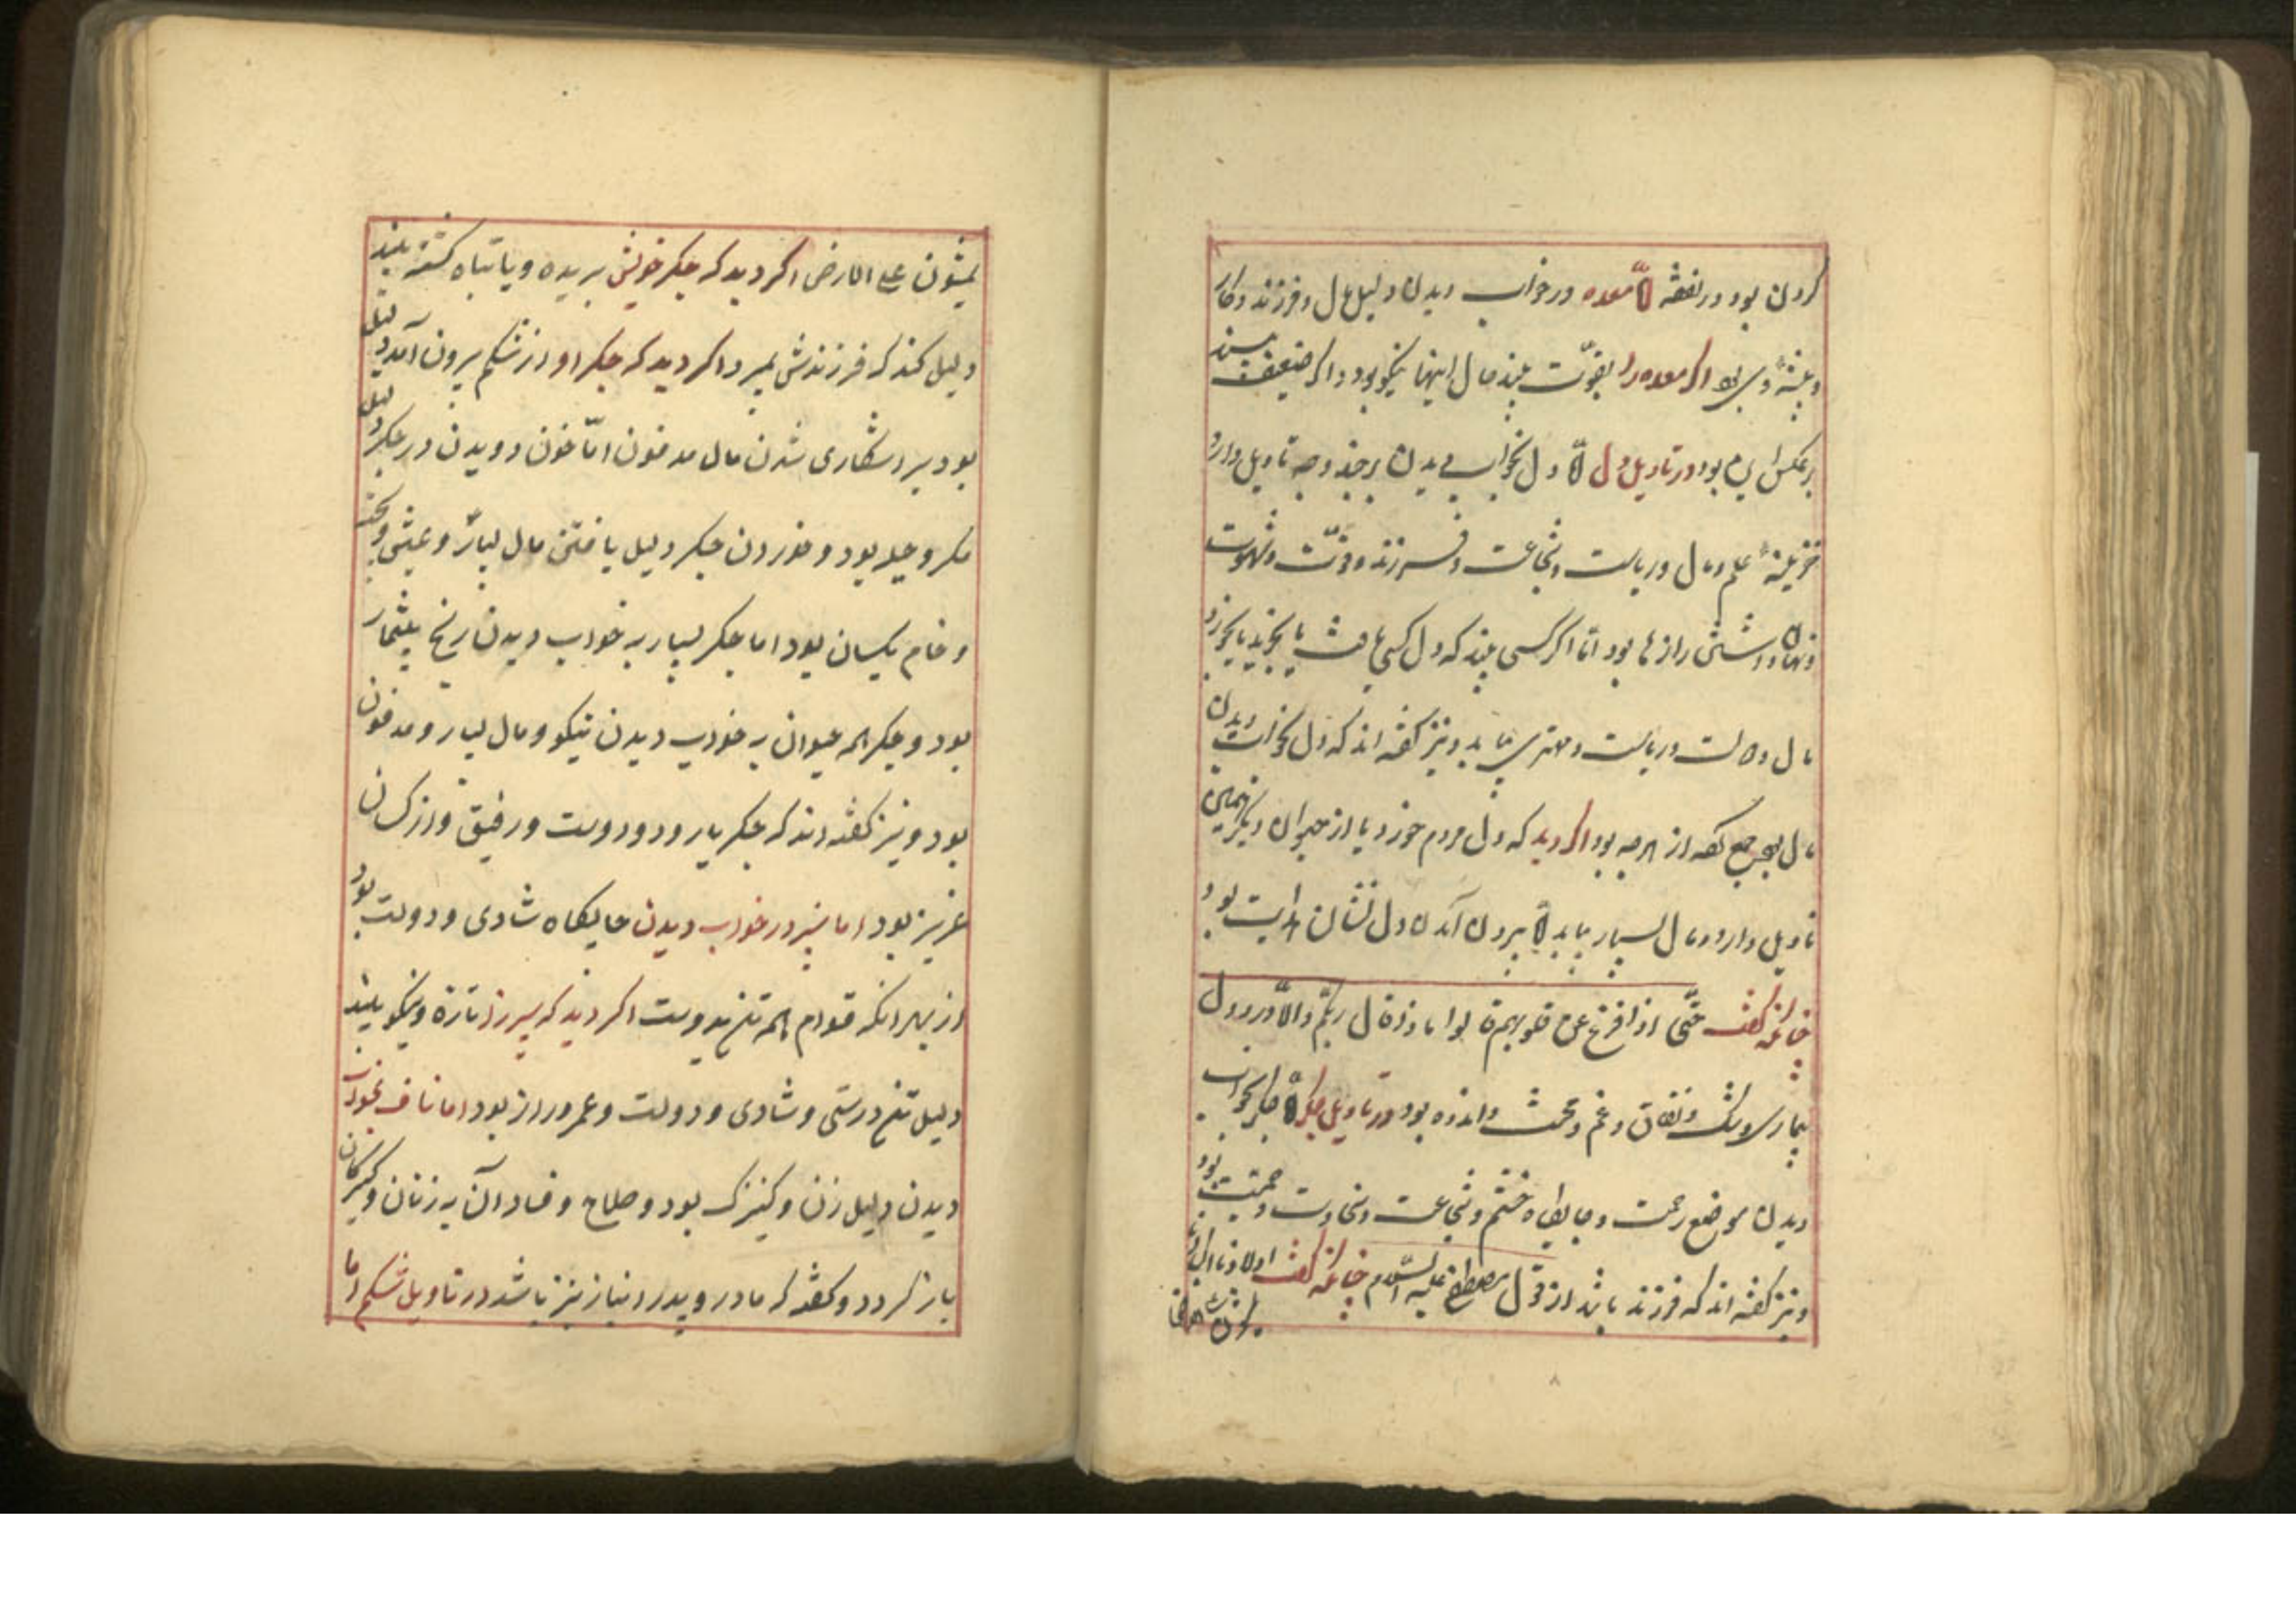 کردن بود در نفقه اما معده در خواب دیدن دلیل مال و فرزند و کار
و پیشه و بود اکر معده را بقوّت بیند مال اینها نیکو بود و اکر ضعیف بیند
برعکس این بود در تاویل دل اما دل بخواب دیدن بر چند وجه تاویل دارد
علم و مال و ریاست و شجاعت و فرزند و قوّت و شهوت
و نهان داشتن رازها بود امّا اکر کسی بیند که دل کسی یا بخرد
مال و ولایت و ریاست و مهتری بیابد و نیز کفته اند که دل بخواب دیدن
مال جمع کفته از هرچه بود اکر دید که دل مردم خورد یا از حیوان دیکر همین
تاویل دارد و مال بسیار بیابد اما بیرون آمدن دل نشان هدایت بود
چنانکه کفت حتّی اذا فزع عن قلوبهم قالوا ماذا قال ربکّم والّا درد دل
بیماری و شک و نفاق و غم و محنت و اندوه بود در تاویل جکر اما جکر بخواب
دیدن موضع رحمت و جایکاه خشم و شجاعت و سخاوت و حمیّت بود
و نیز کفته اند که فرزند باشد از قول مصطفی علیه السّلام چنانکه کفت اولادنا اکبادنا
یمشون علی الارض اکر دید که جکر خویش بریده و یا تباه کشته بیند
دلیل کند که فرزندش بمیرد اکر دید که جکر او از شکم بیرون آمد دلیل
بود بر اشکاری شدن مال مدفون امّا خون دویدن در جکر دلیل
مکر و حیله بود و خوردن جکر دلیل یافتن مال بسیار و عیشی و پخته
و خام یکسان بود اما جکر بسیار به خواب دیدن رنج بیشمار
بود و جکر همه حیوان به خواب دیدن نیکو و مال بسیار و مدفون
بود و نیز کفته اند که جکر یار و دوست و رفیق و از کسان
عزیز بود اما سپرز در خواب دیدن جایکاه شادی و دولت بود
از بهر انکه قوام همه تن بدوست اکر دید که سپرز تازه و نیکو بیند
دلیل تن درستی و شادی و دولت و عمر دراز بود اما ناف بخواب
دیدن دلیل زن و کنیزک بود و صلاح و فساد آن به زنان و کنیزکان
باز کردد و کفته که مادر و پدر را نیاز نیز باشد در تاویل شکم اما